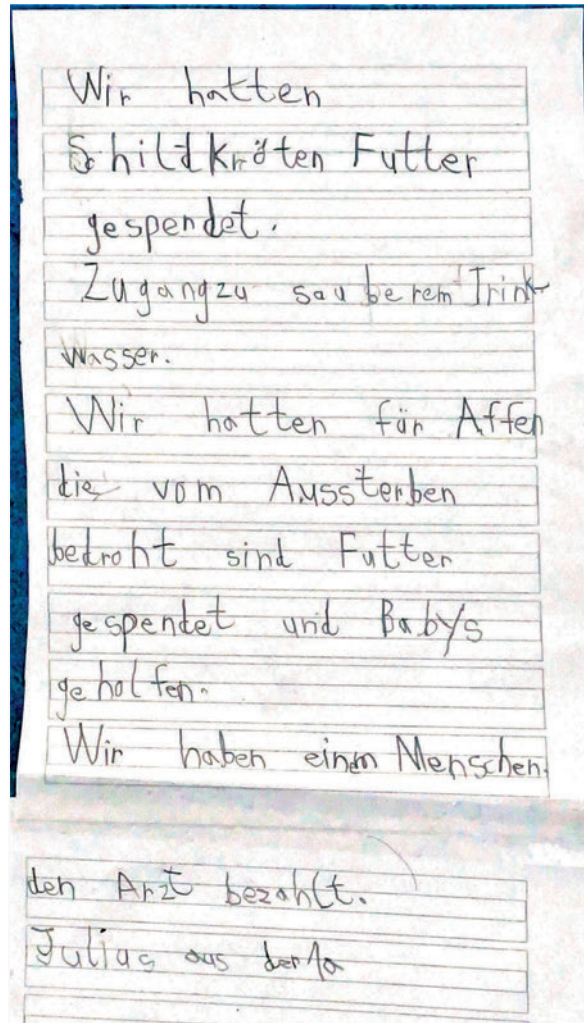 Wir hatten
Schildkröten Futter
gespendet.
Zugangzu sauberem Trink
wasser.
Wir hatten für Affen
die vom Aussterben
bedroht sind Futter
gespendet und Babys
geholfen.
Wir haben einem Menschen
den Arzt bezahlt.
Julius aus der 1a